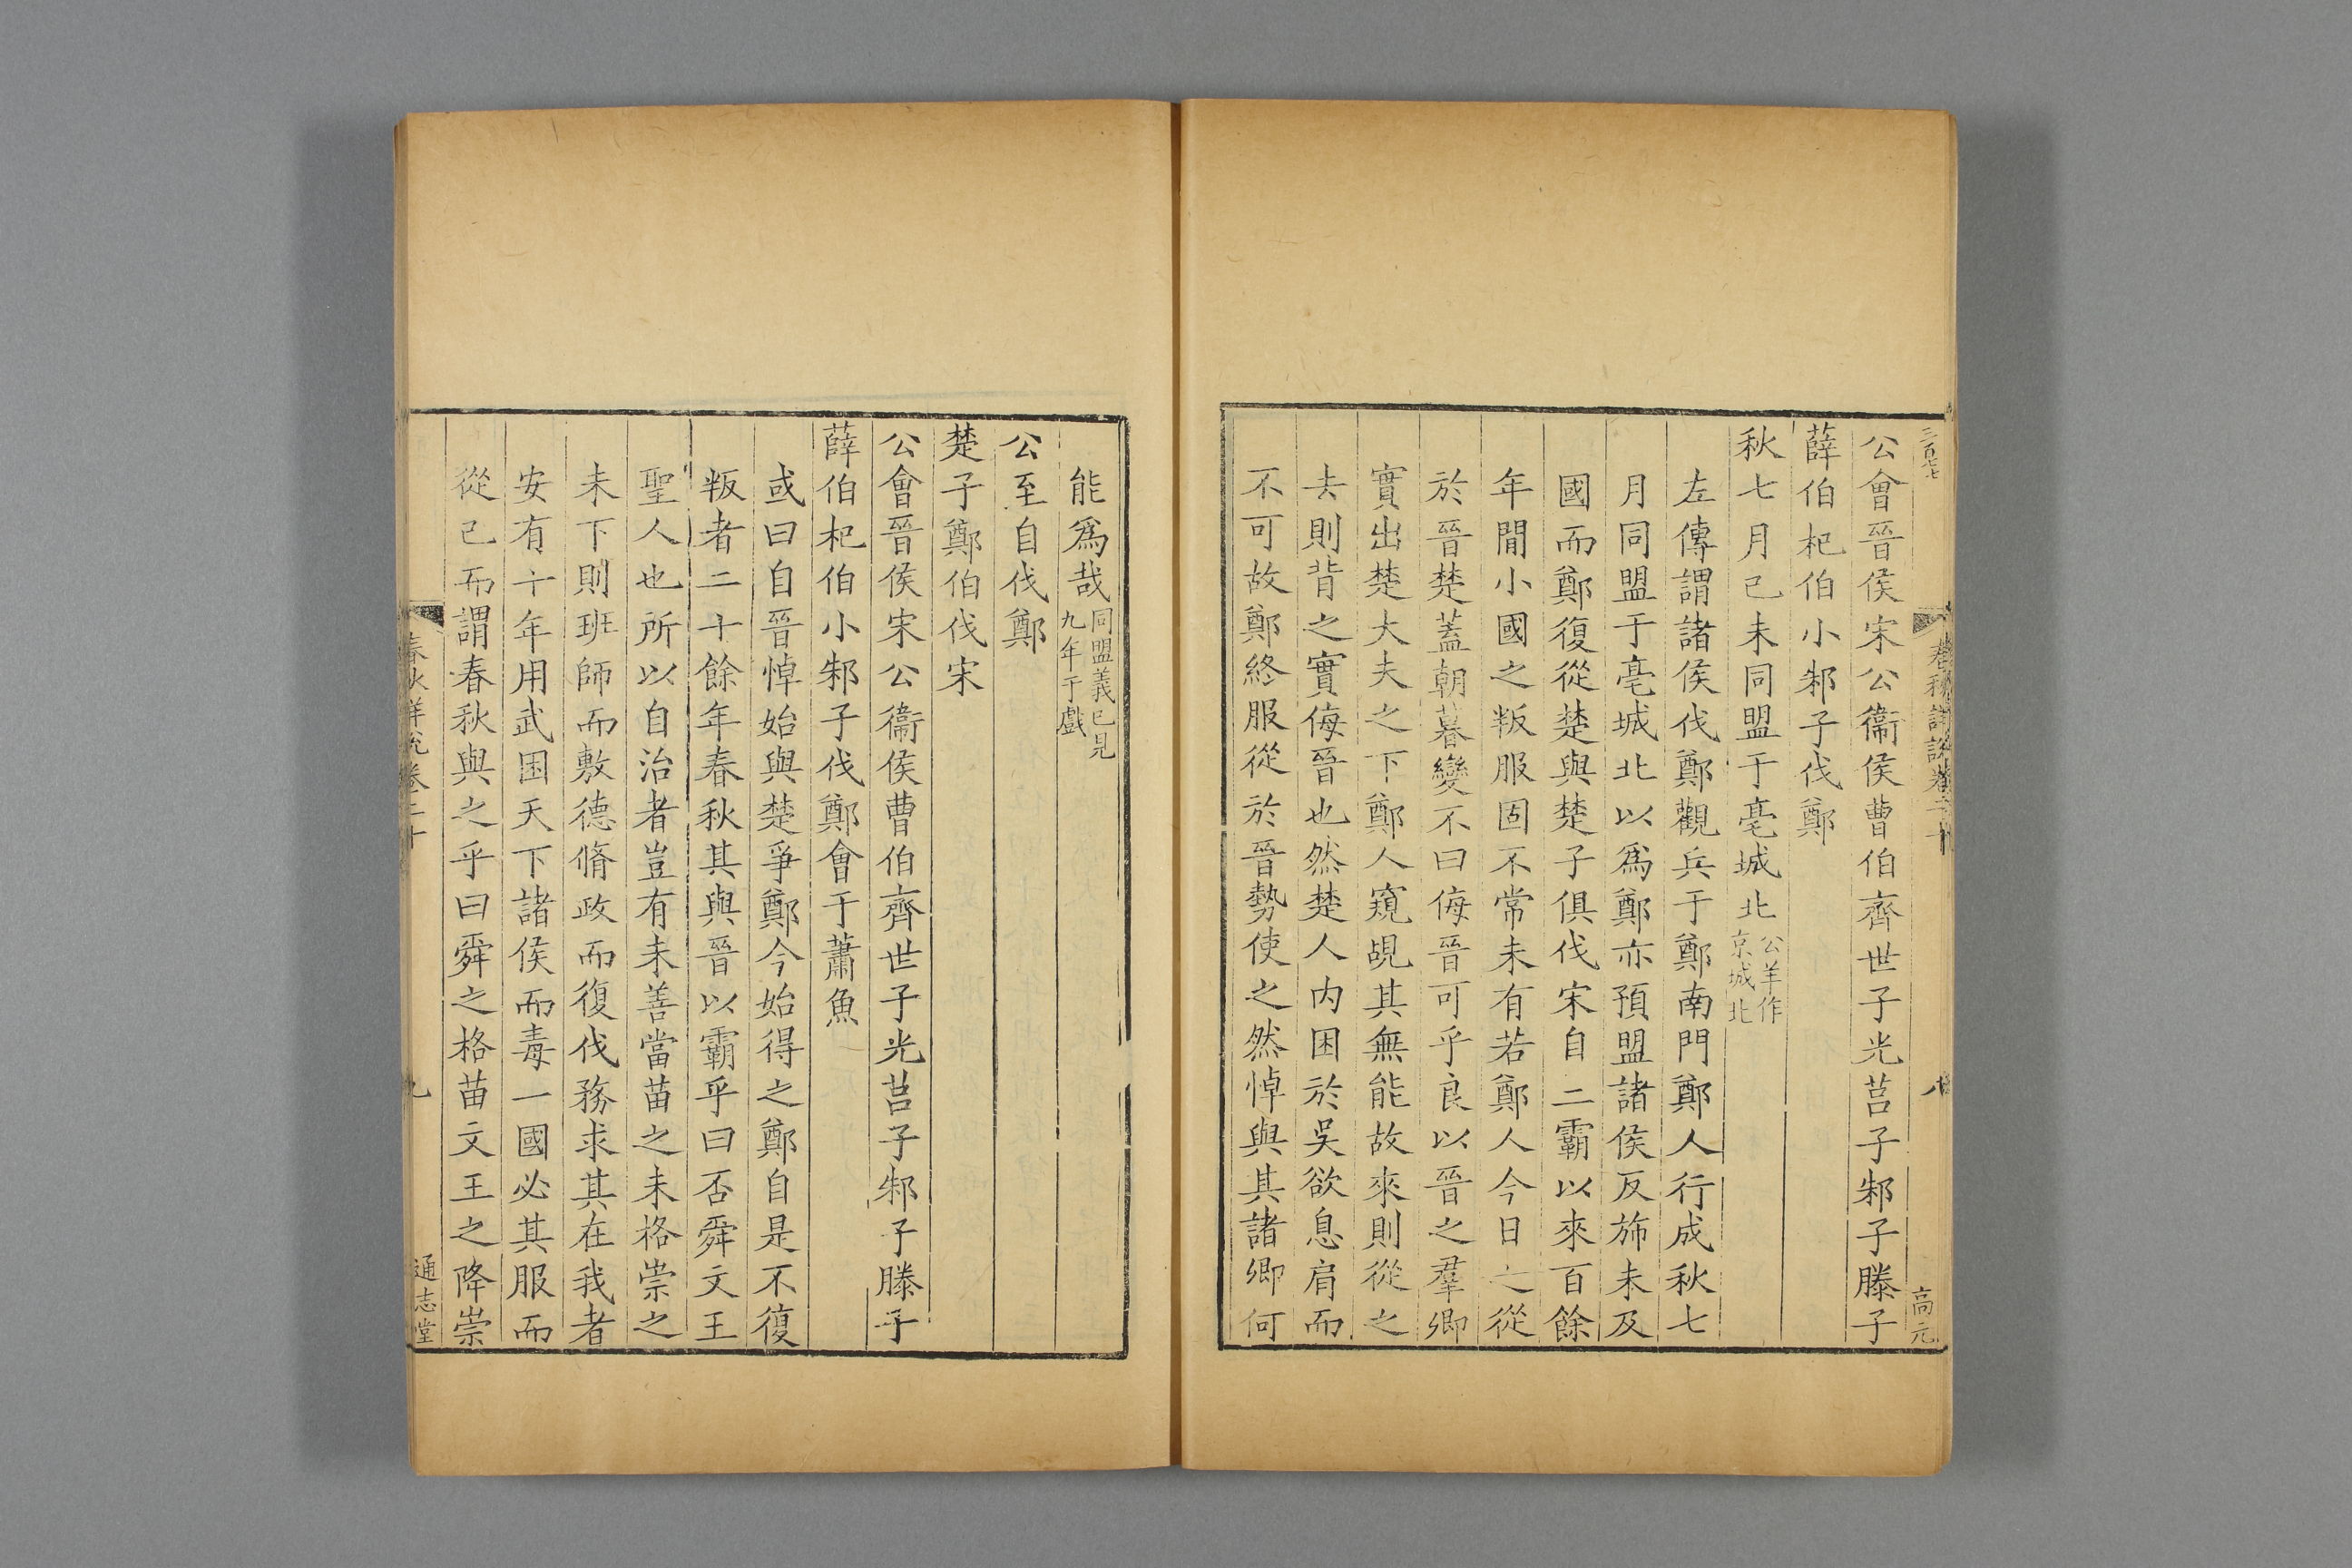 公會晉侯宋公衞侯曹伯齊世子光莒子邾子滕子
薛伯杞伯小邾子伐鄭
秋七月己未同盟于亳城北公羊作京城北
左傳謂諸侯伐鄭觀兵于鄭南門鄭人行成秋七
月同盟于亳城北以爲鄭亦預盟諸侯反斾未及
國而鄭復從楚與楚子俱伐宋自二霸以來百餘
年閒小國之叛服固不常未有若鄭人今日之從
於晉楚蓋朝暮變不曰侮晉可乎良以晉之羣卿
實出楚大夫之下鄭人窺覘其無能故來則從之
去則背之實侮晉也然楚人内困於吳欲息肩而
不可故鄭終服從於晉勢使之然悼與其諸卿何
能爲哉同盟義已見九年于戲
公至自伐鄭
楚子鄭伯伐宋
公會晉侯宋公衞侯曹伯齊世子光莒子邾子滕子
薛伯杞伯小邾子伐鄭會于蕭魚
或曰自晉悼始與楚爭鄭今始得之鄭自是不復
叛者二十餘年春秋其與晉以霸乎曰否舜文王
聖人也所以自治者豈有未善當苗之未格崇之
未下則班師而敷德脩政而復伐務求其在我者
安有十年用武困天下諸侯而毒一國必其服而
從己而謂春秋與之乎曰舜之格苗文王之降崇
春秋詳說卷二十
九
通志堂
三百七七
春秋詳說卷二十
八
高元